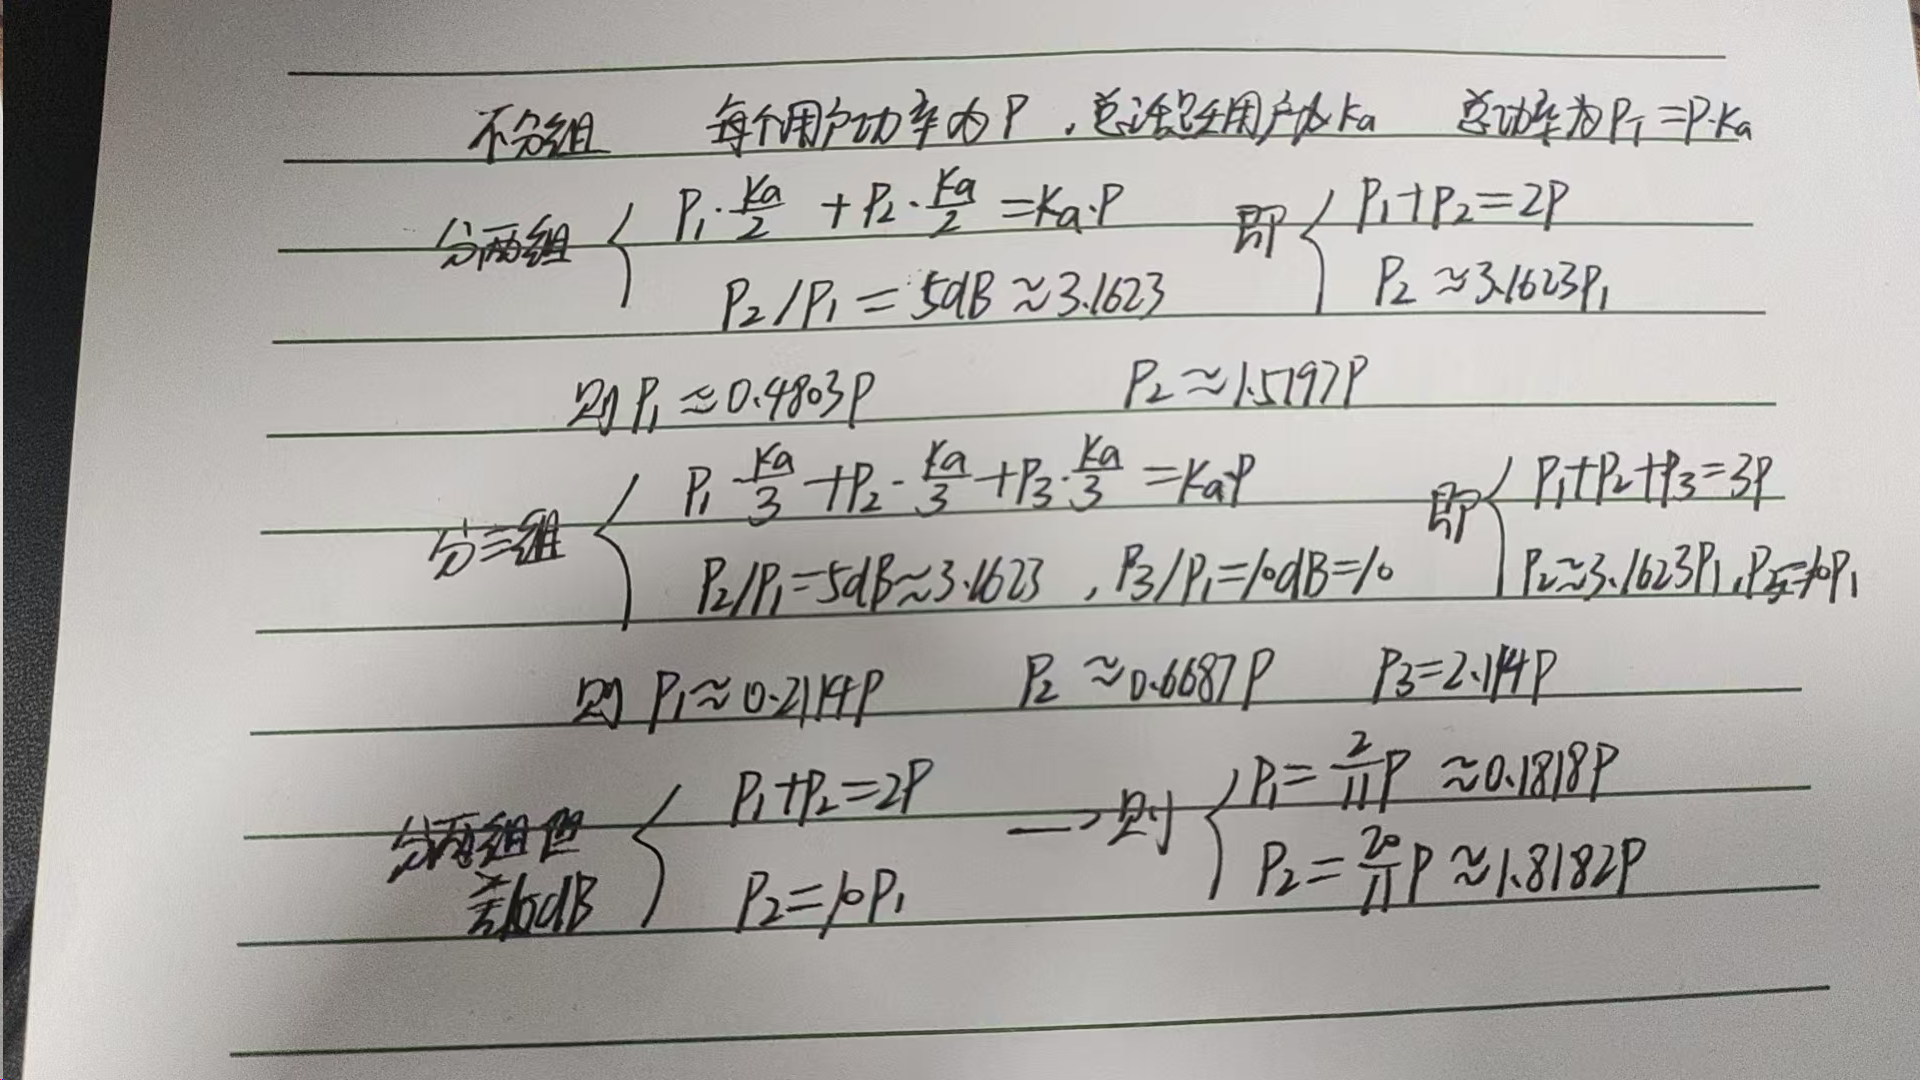 不分组 每个用户功率为P，总活跃用户为Ka 总功率为P_T=P·Ka
分两组 { P₁·Ka/2 + P₂·Ka/2 = Ka·P 即 { P₁+P₂=2P
P₂/P₁ = 5dB ≈ 3.1623 P₂ ≈ 3.1623P₁
则 P₁ ≈ 0.4803P P₂ ≈ 1.5197P
分三组 { P₁·Ka/3 + P₂·Ka/3 + P₃·Ka/3 = Ka·P 即 { P₁+P₂+P₃=3P
P₂/P₁=5dB≈3.1623 , P₃/P₁=10dB=10 P₂≈3.1623P₁, P₃=10P₁
则 P₁≈0.2114P P₂ ≈0.6687P P₃=2.114P
分两组但差10dB { P₁+P₂=2P —> 则 { P₁ = 2/11 P ≈0.1818P
P₂=10P₁ P₂ = 20/11 P ≈1.8182P